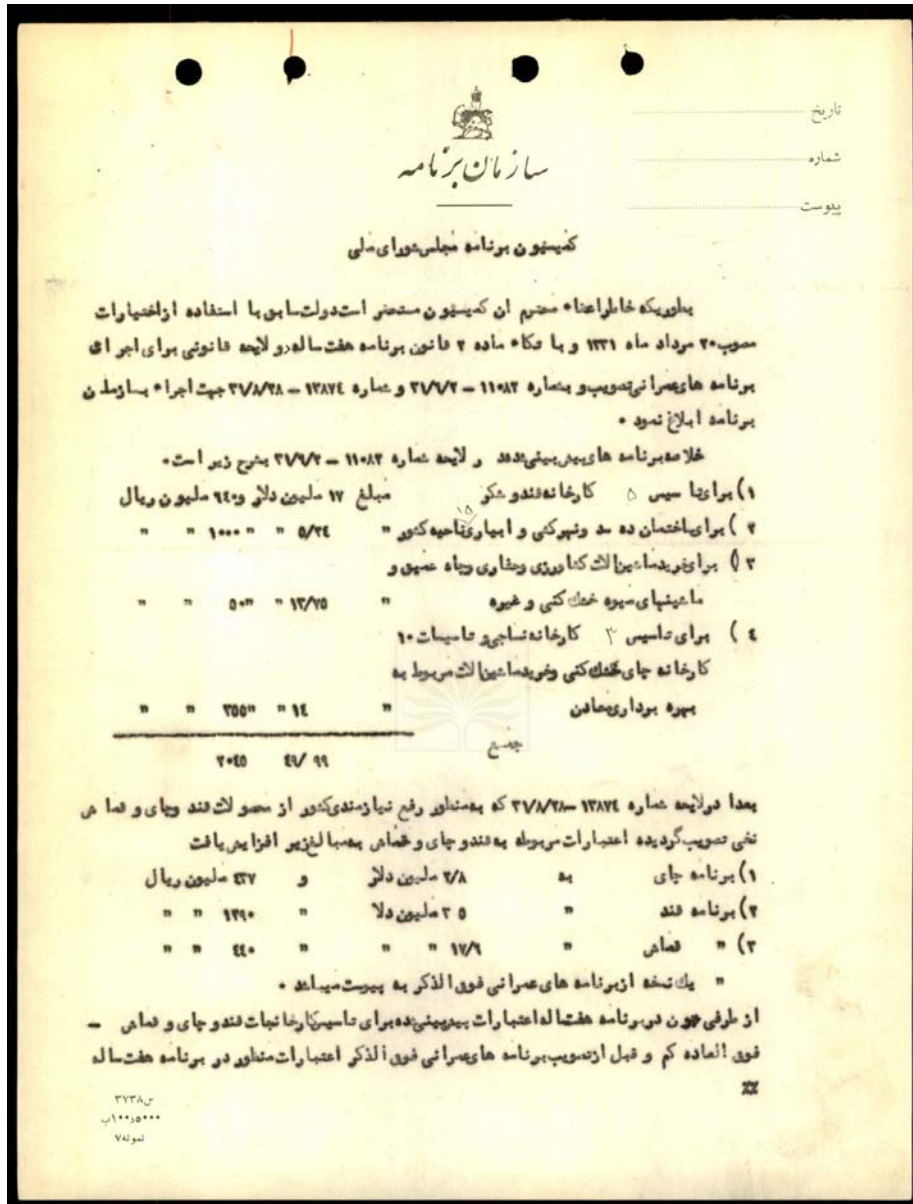 تاریخ
شماره
پیوست
سازمان برنامه
کمیسیون برنامه مجلس شورای ملی
بطوریکه خاطر اعضاء محترم ان کمیسیون مستحضر است دولت سابق با استفاده از اختیارات
مصوب ۲۰ مرداد ماه ۱۳۳۱ و با تکاء ماده ۲ قانون برنامه هفت ساله دو لایحه قانونی برای اجرای
برنامه های عمرانی تصویب و بشماره ۱۱۰۸۲ – ۳۱/۶/۲ و شماره ۱۳۸۷۴ – ۳۱/۸/۲۸ جهت اجراء بسازمان
برنامه ابلاغ نمود ٠
خلاصه برنامه های پیش بینی شده در لایحه شماره ۱۱۰۸۲ – ۳۱/۶/۲ بشرح زیر است٠
۱) برای تاسیس ۵ کارخانه قند و شکر مبلغ ۱۷ ملیون دلار و ۶۴۰ ملیون ریال
۲ ) برای ساختمان ده سد ونهرکنی و ابیاری ۱۵ ناحیه کشور " ۵/۲۴ " " ۱۰۰۰ " "
۳ ) برای خرید ماشین الات کشاورزی وحفاری وچاه عمیق و
ماشینهای میوه خشک کنی و غیره " ۱۳/۷۵ " ۵۰" " "
٤ ) برای تاسیس ۳ کارخانه نساجی و تاسیسات ۱۰
کارخانه چای خشک کنی وخرید ماشین الات مربوط به
بهره برداری معادن " ۱٤ " ۳۵۵" " "
جمع
۴۹/ ۹۹ ۲۰٤۵
بعدا در لایحه شماره ۱۳۸۷٤ –۳۱/۸/۲۸ که بمنظور رفع نیازمندی کشور از محصولات قند وچای و قماش
نخی تصویب گردیده اعتبارات مربوطه به قند و چای و قماش بمبالغ زیر افزایش یافت
۱) برنامه چای به ۲/۸ ملیون دلار و ٤۳۷ ملیون ریال
۲) برنامه قند " ۳۵ ملیون دلا " ۱۳۹۰ " "
۳) " قماش " ۱۷/۶ " " " ٤٤۰ " "
" یک نسخه از برنامه های عمرانی فوق الذکر به پیوست میباشد ٠
از طرفی چون در برنامه هفت ساله اعتبارات پیش بینی شده برای تاسیس کارخانجات قند و چای و قماش –
فوق العاده کم و قبل از تصویب برنامه های عمرانی فوق الذکر اعتبارات منظور در برنامه هفت ساله
٪٪
س۳۷۳۸
۵۰۰۰د۱۰۰ب
نمونه۷